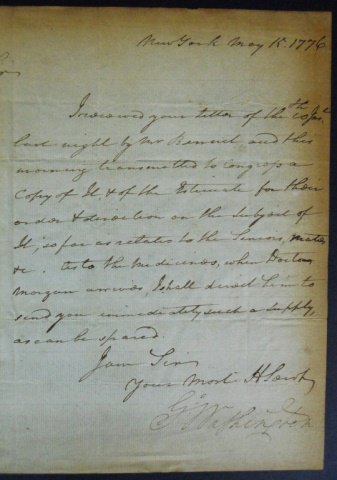 New York May 15. 1776
Sir
I received your letter of the Inst.
last night by Mr Bennet, and this
morning transmitted to Congress a
Copy of It, & of the Estimate for their
order & direction on the Subject of
It, so far as relates to the Linens,
&c. As to the Medicines, when Doctor
Morgan arrives, I shall direct him to
send you immediately such a Supply,
as can be spared.
I am Sir
Your Most H Servt
Go Washington